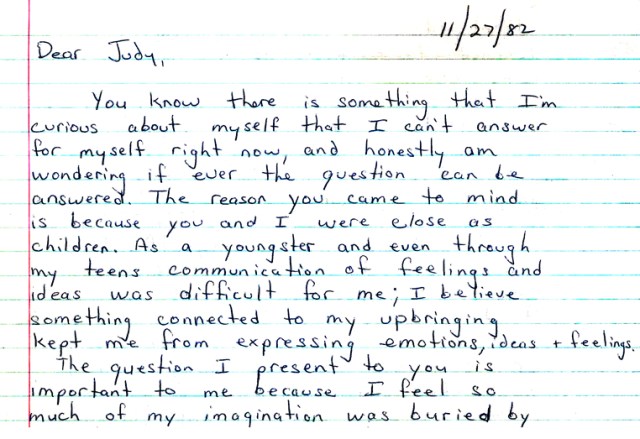 11/27/82
Dear Judy,
You know there is something that I'm
curious about myself that I can't answer
for myself right now, and honestly am
wondering if ever the question can be
answered. The reason you came to mind
is because you and I were close as
children. As a youngster and even through
my teens communication of feelings and
ideas was difficult for me; I believe
something connected to my upbringing
kept me from expressing emotions, ideas + feelings.
The question I present to you is
important to me because I feel so
much of my imagination was buried by